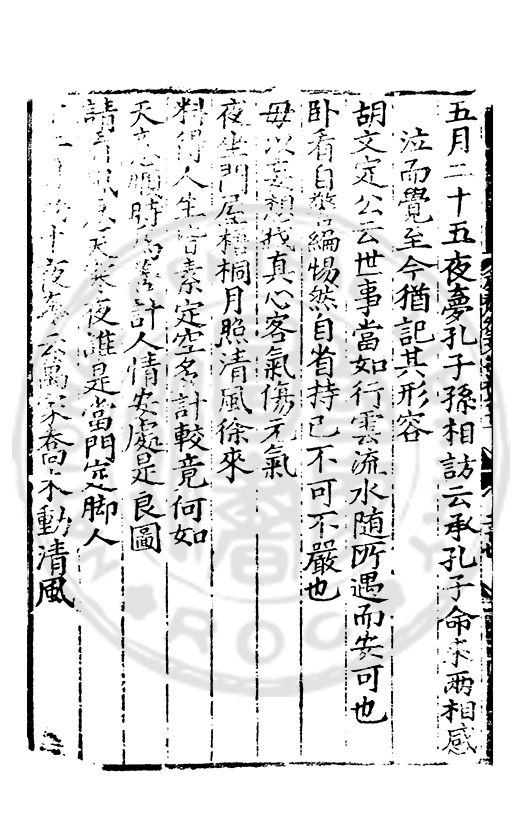 五月二十五夜夢孔子孫相訪云承孔子命來兩相感
泣而覺至今猶記其形容
胡文定公云世事當如行雲流水隨所遇而安可也
卧看自警編惕然自省持己不可不嚴也
毋以妄想戕真心客氣傷元氣
夜坐門屋梧桐月照清風徐來
料得人生皆素定空多計較竟何如
天意順時為善計人情安處是良圖
請看風急天寒夜誰是當門定脚人
夜 云萬家喬木動清風